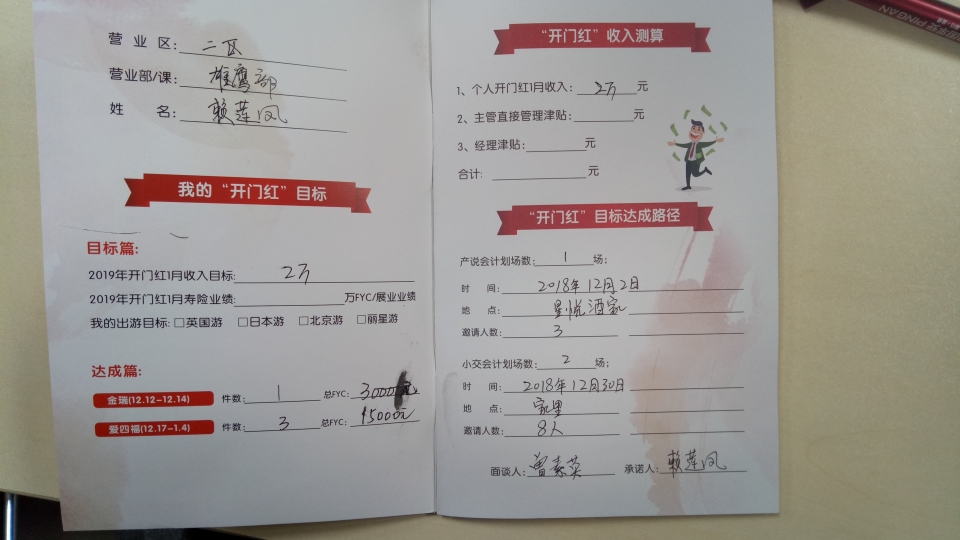 营 业 区: 二区
营业部/课: 雄鹰部
姓 名: 赖莲凤
我的“开门红”目标
目标篇:
2019年开门红1月收入目标: 2万
2019年开门红1月寿险业绩: 万FYC/展业业绩
我的出游目标: □英国游 □日本游 □北京游 □丽星游
达成篇:
金瑞(12.12-12.14) 件数: 1 总FYC: 30000元
爱四福(12.17-1.4) 件数: 3 总FYC: 15000元
“开门红”收入测算
1、个人开门红1月收入: 2万 元
2、主管直接管理津贴: 元
3、经理津贴: 元
合计: 元
“开门红”目标达成路径
产说会计划场数: 1 场;
时 间: 2018年12月2日
地 点: 星悦酒家
邀请人数: 3
小交会计划场数: 2 场;
时 间: 2018年12月30日
地 点: 家里
邀请人数: 8人
面谈人: 曾素英 承诺人: 赖莲凤
PING AN